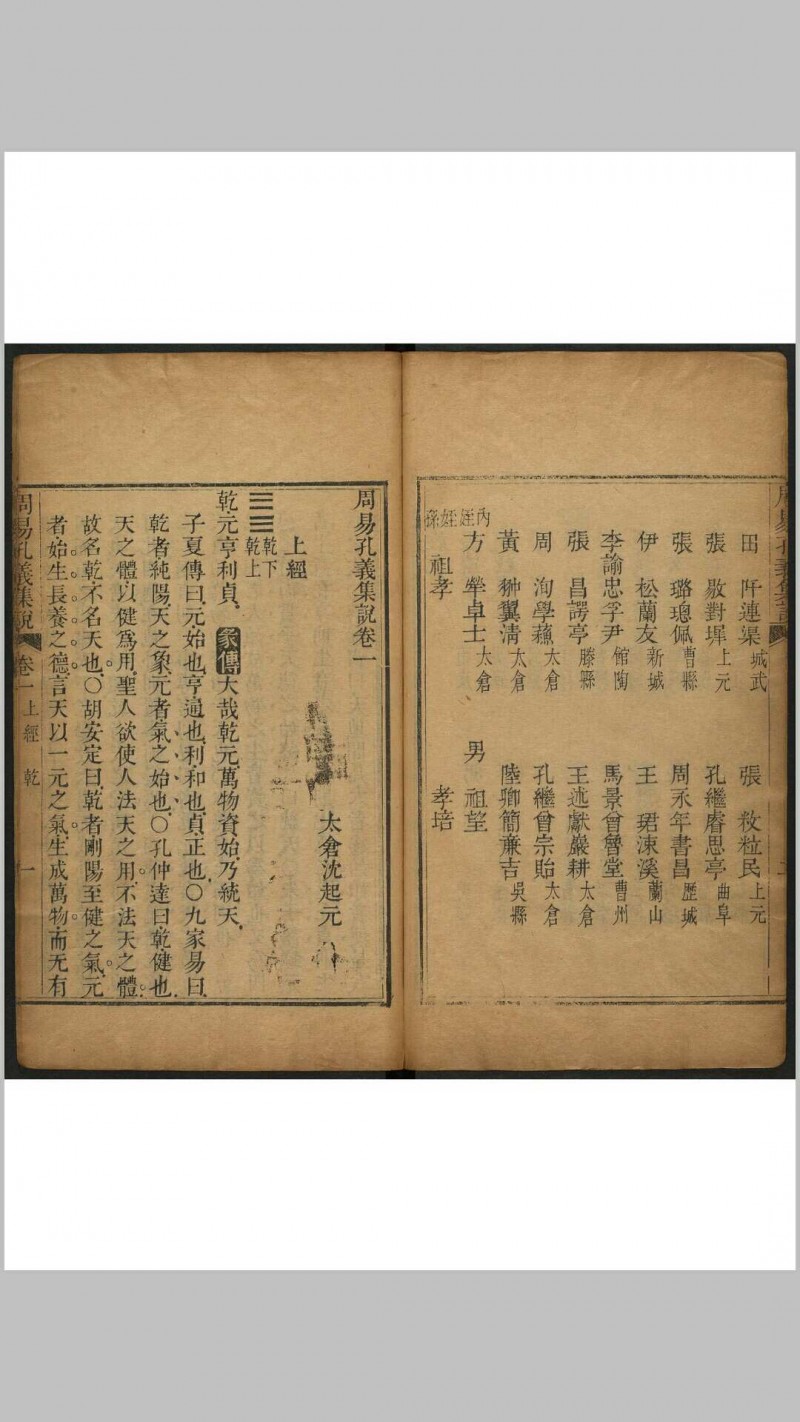 田 阡連渠 城武
張 斆對墀 上元
張 璐璁佩 曹縣
伊 松蘭友 新城
李諭忠孚尹 館陶
張 昌諤亭 滕縣
周 洵學蘓 太倉
黃 翀翼清 太倉
方 犖卓士 太倉
祖孝
內姪姪孫
張 敉粒民 上元
孔繼睿思亭 曲阜
周永年書昌 歷城
王 珺涑溪 蘭山
馬景曾魯堂 曹州
王述獻巖耕 太倉
孔繼曾宗貽 太倉
陸卿簡亷吉 吳縣
男 祖望
孝培
周易孔義集說卷一
太倉沈起元
上經
乾下
乾上
乾元亨利貞 彖傳 大哉乾元萬物資始乃統天
子夏傳曰元始也亨通也利和也貞正也〇九家易曰
乾者純陽天之象元者氣之始也〇孔仲達曰乾健也
天之體以健爲用聖人欲使人法天之用不法天之體
故名乾不名天也〇胡安定曰乾者剛陽至健之氣元
者始生長養之德言天以一元之氣生成萬物而无有
周易孔義集說 卷一 上經 乾 一